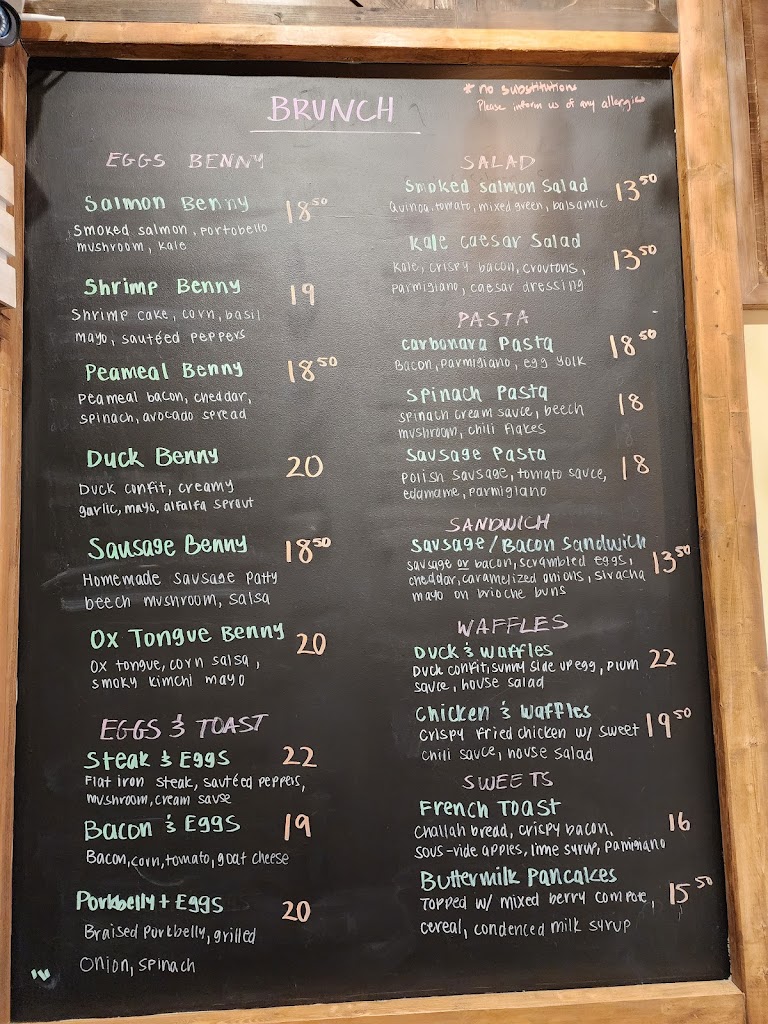 BRUNCH
* no substitutions
Please inform us of any allergies
EGGS BENNY
Salmon Benny 18⁵⁰
Smoked salmon, portobello
mushroom, kale
Shrimp Benny 19
Shrimp cake, corn, basil
mayo, sautéed peppers
Peameal Benny 18⁵⁰
Peameal bacon, cheddar,
spinach, avocado spread
Duck Benny 20
Duck confit, creamy
garlic, mayo, alfalfa sprout
Sausage Benny 18⁵⁰
Homemade sausage patty
beech mushroom, salsa
Ox Tongue Benny 20
Ox tongue, corn salsa,
smoky kimchi mayo
EGGS & TOAST
Steak & Eggs 22
Flat iron steak, sautéed peppers,
mushroom, cream sause
Bacon & Eggs 19
Bacon, corn, tomato, goat cheese
Porkbelly + Eggs 20
Braised Porkbelly, grilled
onion, spinach
SALAD
Smoked Salmon Salad 13⁵⁰
Quinoa, tomato, mixed green, balsamic
Kale Caesar Salad 13⁵⁰
Kale, crispy bacon, croutons,
parmigiano, caesar dressing
PASTA
Carbonara Pasta 18⁵⁰
Bacon, parmigiano, egg yolk
Spinach Pasta 18
spinach cream sauce, beech
mushroom, chili flakes
Sausage Pasta 18
Polish sausage, tomato sauce,
edamame, parmigiano
SANDWICH
Sausage/Bacon Sandwich 13⁵⁰
sausage or bacon, scrambled eggs,
cheddar, caramelized onions, siracha
mayo on brioche buns
WAFFLES
Duck & Waffles 22
Duck confit, sunny side up egg, plum
sauce, house salad
Chicken & Waffles 19⁵⁰
Crispy fried chicken w/ sweet
chili sauce, house salad
SWEETS
French Toast 16
Challah bread, crispy bacon,
sous-vide apples, lime syrup, Pamigiano
Buttermilk Pancakes 15⁵⁰
Topped w/ mixed berry compote,
cereal, condenced milk syrup